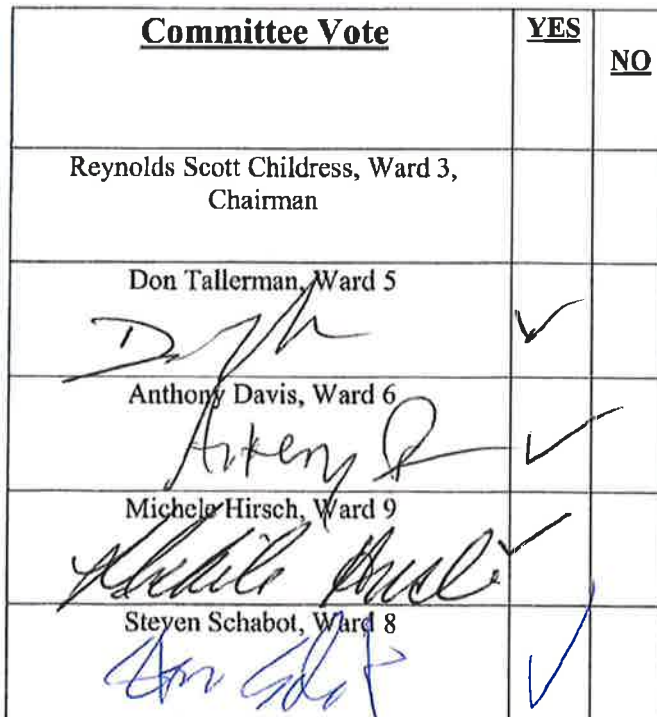 Committee Vote YES NO
Reynolds Scott Childress, Ward 3,
Chairman
Don Tallerman, Ward 5
✓
Anthony Davis, Ward 6
Anthony ✓
Michele Hirsch, Ward 9
Michele Hirsch ✓
Steven Schabot, Ward 8
✓